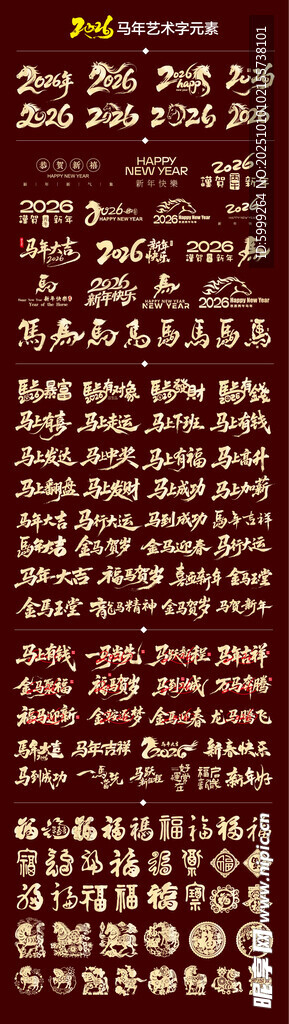 2026 马年艺术字元素
2026年 2026 2026 happy 2026
2026 2026 2026 2026
恭贺新禧 HAPPY NEW YEAR 2026
HAPPY NEW YEAR 新年快樂 謹賀新年
2026 2026 HAPPY NEW YEAR 2026 Happy New Year 2026
謹賀新年
马年大吉 2026 2026 新年快乐 2026
2026 新年快乐 HAPPY NEW YEAR 2026 Happy New Year
Year of the Horse
馬 馬 馬 馬 馬 馬 馬
馬上暴富 馬上有对象 馬上發財 馬上有錢
马上有喜 马上走运 马上下班 马上有钱
马上发达 马上中奖 马上有福 马上高升
马上翻盘 马上发财 马上成功 马上加薪
马年大吉 马行大运 马到成功 馬年吉祥
馬年大吉 金马贺岁 金马迎春 马行大运
马年大吉 福马贺岁 喜迎新年 金马玉堂
金马玉堂 龍马精神 金马贺岁 马贺新年
马上有钱 一马当先 马跃新程 马年吉祥
金马聚福 福马贺岁 马到功成 万马奔腾
福马迎新 金鞍逐梦 金马迎春 龙马腾飞
馬年大吉 马年吉祥 2026 新春快乐
马到成功 一马当先 马跃新程 好运常在 新年好
福 福 福 福 福 福 福 福 福
福 福 福 福 福
福 福 福 福 福
福
昵享网 www.nipic.cn
ID:5999264 NO:20251016102155738101